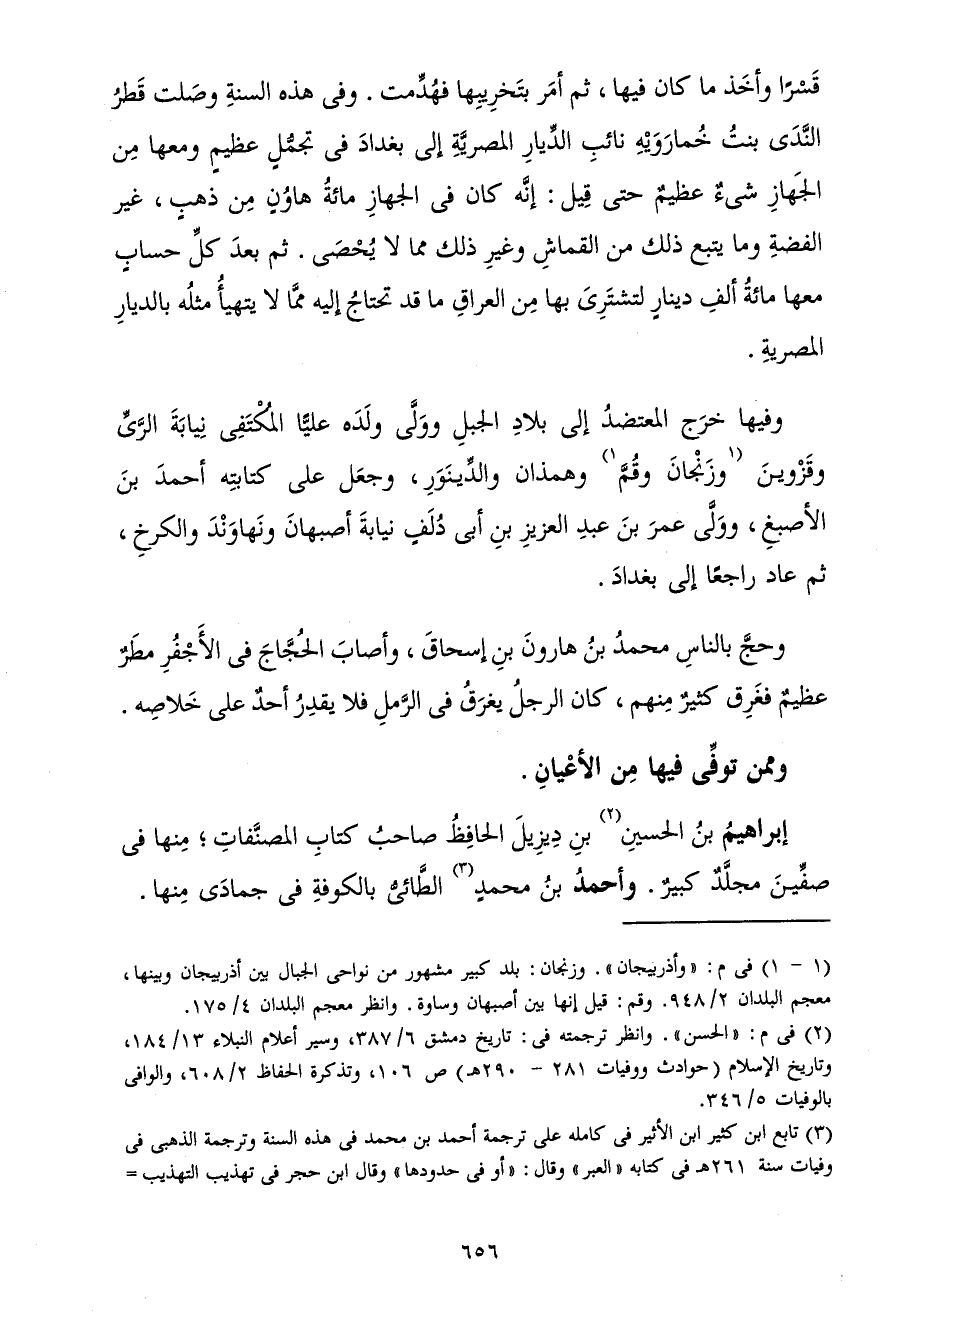 قَسْرًا وأخَذ ما كان فيها ، ثم أمَر بتَخريبِها فهُدِّمت . وفى هذه السنةِ وصَلت قَطْرُ
النَّدَى بنتُ خُمارَوَيْهِ نائبِ الدِّيارِ المصريَّةِ إلى بغدادَ فى تجمُّلٍ عظيمٍ ومعها مِن
الجَهازِ شىءٌ عظيمٌ حتى قِيل : إنَّه كان فى الجهازِ مائةُ هاوُنٍ مِن ذهبٍ ، غير
الفضةِ وما يتبع ذلك من القماشِ وغيرِ ذلك مما لا يُحْصَى . ثم بعدَ كلِّ حسابٍ
معها مائةُ ألفِ دينارٍ لتشترِىَ بها مِن العراقِ ما قد تحتاجُ إليه ممَّا لا يتهيأُ مثلُه بالديارِ
المصريةِ .
وفيها خرَج المعتضدُ إلى بلادِ الجبلِ ووَلَّى ولَدَه عليًّا المُكْتَفِى نِيابَةَ الرَّىِّ
وقَزْوينَ (١وزَنْجانَ وقُمَّ١) وهمذان والدِّينَوَرِ ، وجعَل على كتابتِه أحمدَ بنَ
الأصبغِ ، ووَلَّى عمرَ بنَ عبدِ العزيزِ بنِ أبى دُلَفٍ نيابةَ أصبهانَ ونَهاوَنْدَ والكرخِ ،
ثم عاد راجعًا إلى بغدادَ .
وحجَّ بالناسِ محمدُ بنُ هارونَ بنِ إسحاقَ ، وأصابَ الحُجَّاجَ فى الأَجْفُرِ مطَرٌ
عظيمٌ فغَرِق كثيرٌ مِنهم ، كان الرجلُ يغرَقُ فى الرَّملِ فلا يقدِرُ أحدٌ على خَلاصِه .
وممن توفِّى فيها مِن الأعْيانِ .
إبراهيمُ بنُ الحسينِ(٢) بنِ دِيزِيلَ الحافِظُ صاحبُ كتابِ المصنَّفاتِ ؛ مِنها فى
صفِّينَ مجلَّدٌ كبيرٌ . وأحمدُ بنُ محمدٍ(٣) الطَّائىُّ بالكوفةِ فى جمادَى مِنها .
(١ - ١) فى م : «وأذربيجان» . وزنجان : بلد كبير مشهور من نواحى الجبال بين أذربيجان وبينها ،
معجم البلدان ٢/ ٩٤٨. وقم : قيل إنها بين أصبهان وساوة . وانظر معجم البلدان ٤/ ١٧٥.
(٢) فى م : «الحسن» . وانظر ترجمته فى : تاريخ دمشق ٦/ ٣٨٧، وسير أعلام النبلاء ١٣/ ١٨٤،
وتاريخ الإسلام (حوادث ووفيات ٢٨١ - ٢٩٠هـ) ص ١٠٦، وتذكرة الحفاظ ٢/ ٦٠٨، والوافى
بالوفيات ٥/ ٣٤٦.
(٣) تابع ابن كثير ابن الأثير فى كامله على ترجمة أحمد بن محمد فى هذه السنة وترجمة الذهبى فى
وفيات سنة ٢٦١هـ فى كتابه «العبر» وقال : «أو فى حدودها» وقال ابن حجر فى تهذيب التهذيب =
٦٥٦